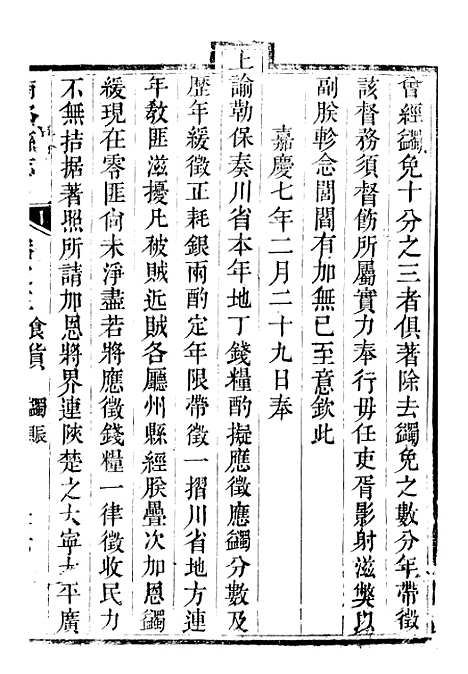 曾經蠲免十分之三者俱著除去蠲免之數分年帶徵
該督務須督飭所屬實力奉行毋任吏胥影射滋獘以
副朕軫念閭閻有加無已至意欽此
嘉慶七年二月二十九日奉
上諭勒保奏川省本年地丁錢糧酌擬應徵應蠲分數及
歷年緩徵正耗銀兩酌定年限帶徵一摺川省地方連
年教匪滋擾凡被賊近賊各廳州縣經朕疊次加恩蠲
緩現在零匪尙未淨盡若將應徵錢糧一律徵收民力
不無拮据著照所請加恩將界連陝楚之大寧太平廣
食貨 蠲賑